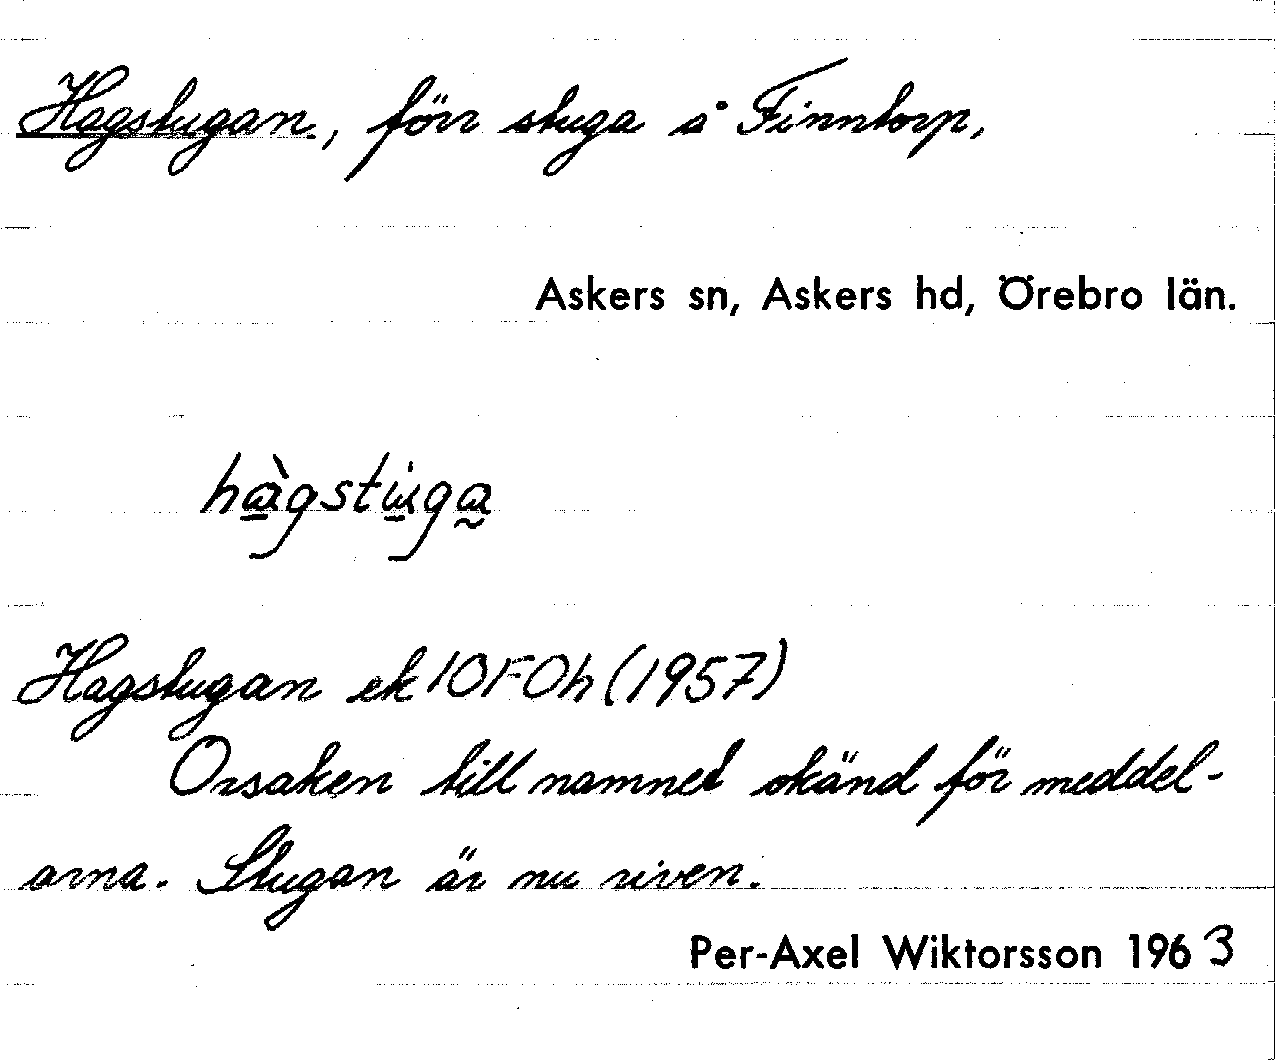 Hagstugan, förr stuga å Finntorp,
Askers sn, Askers hd, Örebro län.
hàgstu̇ga
Hagstugan ek 10F0h (1957)
Orsaken till namnet okänd för meddel-
arna. Stugan är nu riven.
Per-Axel Wiktorsson 1963